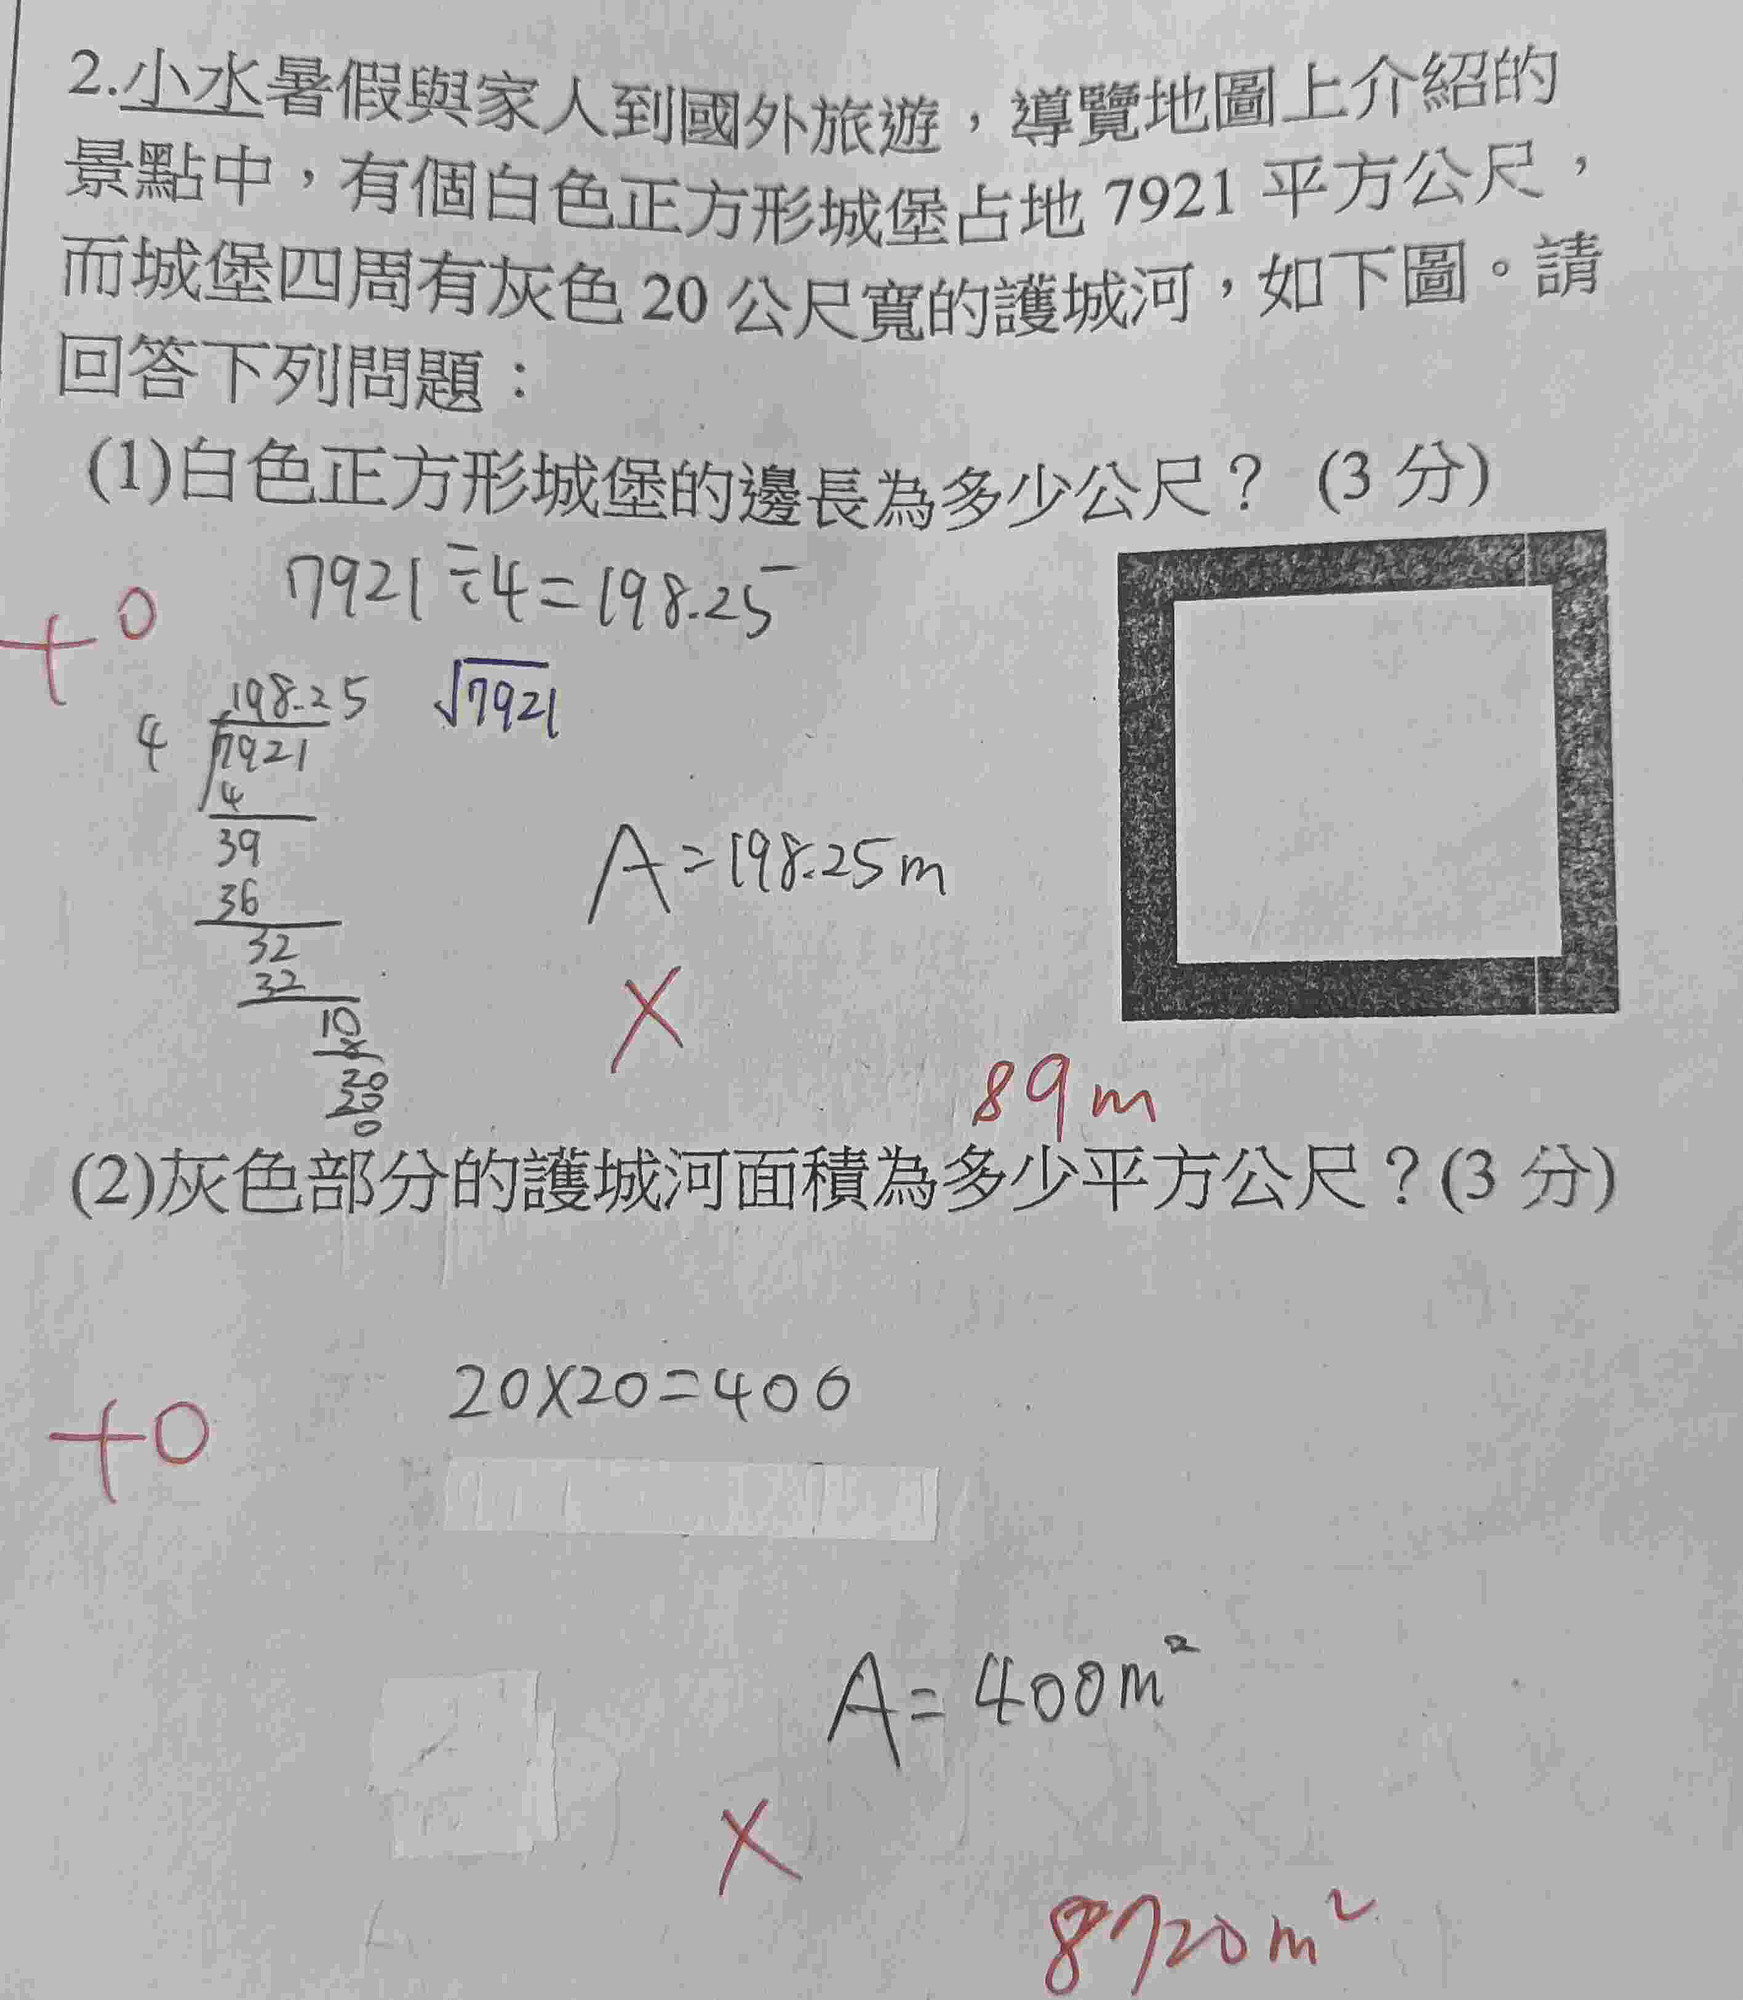 2.小水暑假與家人到國外旅遊，導覽地圖上介紹的
景點中，有個白色正方形城堡占地 7921 平方公尺，
而城堡四周有灰色 20 公尺寬的護城河，如下圖。請
回答下列問題：
(1)白色正方形城堡的邊長為多少公尺？ (3 分)
7921÷4=198.25
+0
198.25
4
7921
√7921
4
39
36
A=198.25m
32
32
10
8
20
20
0
X
89m
(2)灰色部分的護城河面積為多少平方公尺？(3 分)
20X20=400
+0
A=400m²
X
8720m²